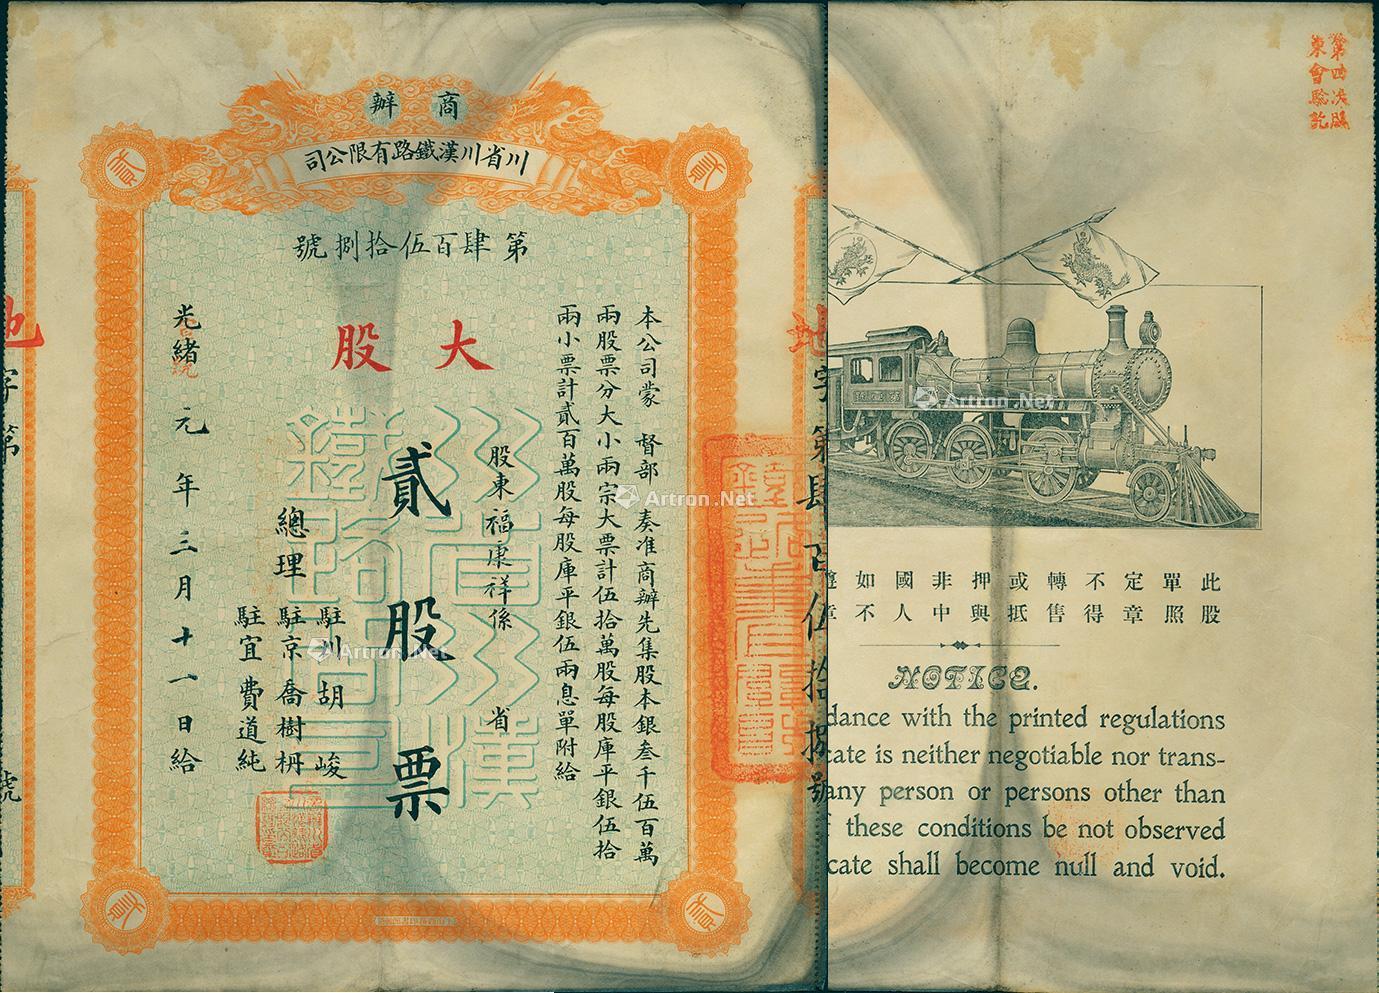 商辦
川省川漢鐵路有限公司
第肆百伍拾捌號
大股
本公司蒙 督部 奏准商辦先集股本銀叁千伍百萬
兩股票分大小兩宗大票計伍拾萬股每股庫平銀伍拾
兩小票計貳百萬股每股庫平銀伍兩息單附給
股東福康祥係 省
貳股票
總理
駐川胡 峻
駐京喬樹枬
駐宜費道純
光緒元年三月十一日給
宣統
川省川漢鐵路公司
地字第肆百伍拾捌號
地
字
第
號
第四次臨
東會驗訖
此單定不轉或押非國如遵
股照章得售抵與中人不章
NOTICE.
dance with the printed regulations
cate is neither negotiable nor trans-
any person or persons other than
f these conditions be not observed
cate shall become null and void.
Artron.Net
Artron.Net
Artron.Net